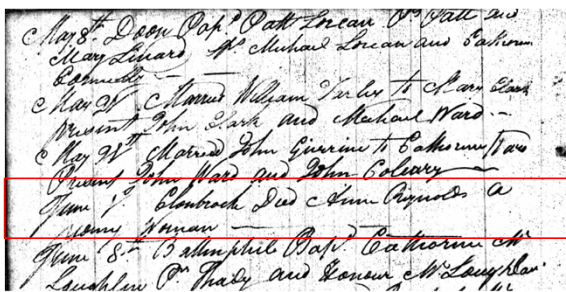 May 8th Doon Bapd Patt Lorcan Ps Patt and
Mary Linard Ss Michael Lorcan and Catherin
Connelly
May 21 Married William Varley to Mary Clark
present John Clark and Michael Ward
May 21th Married John Guerrine to Catherine Ward
Present John Ward and John Coleary
June 1st Clonbrock Died Anne Reynolds a
young Woman
June 8th Ballinphile Bapd Catherine Mc
Loughlin Ps Thady and Honour McLoughlin